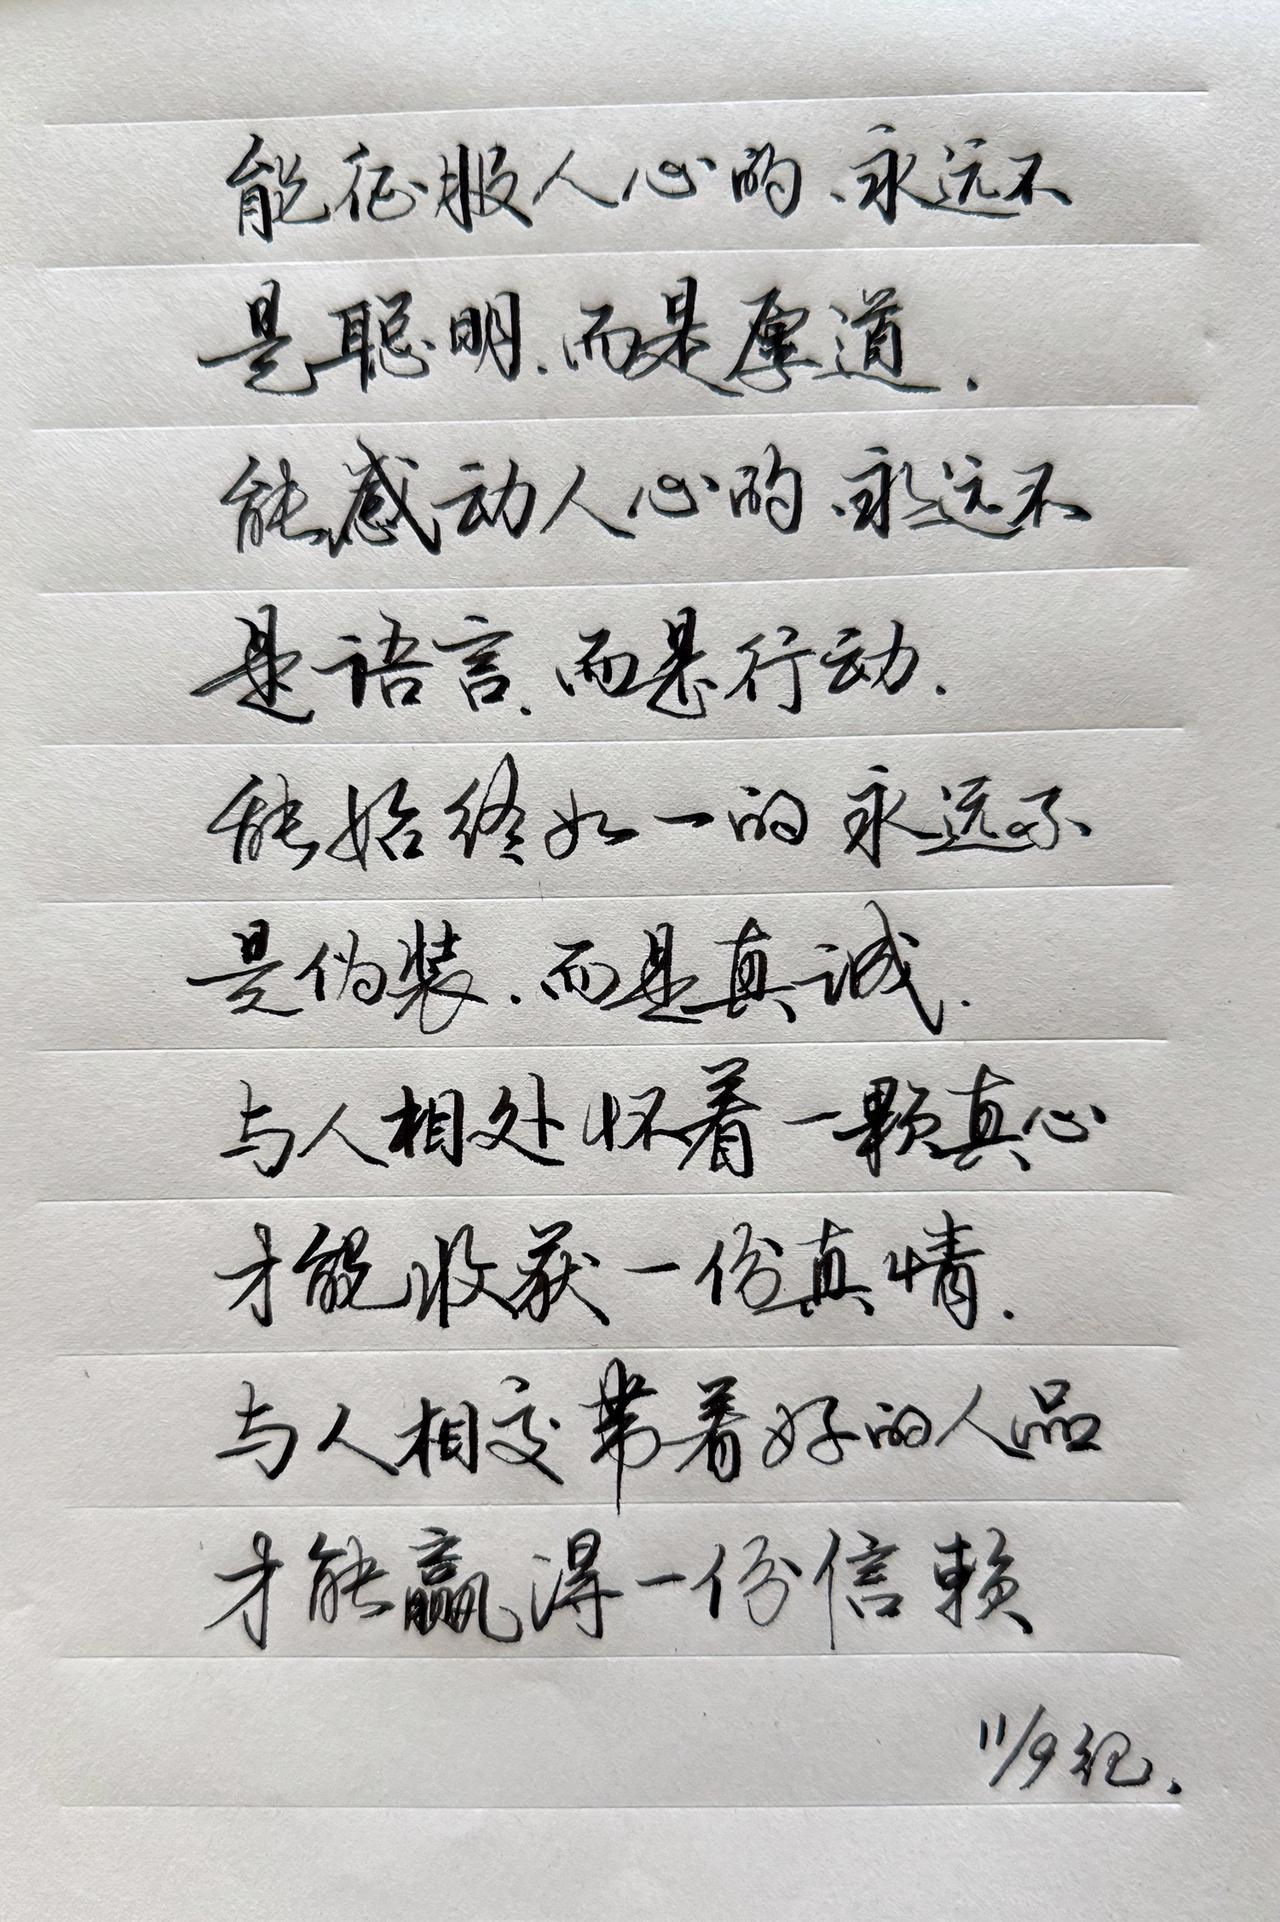 能征服人心的、永远不
是聪明、而是厚道.
能感动人心的、永远不
是语言、而是行动.
能始终如一的永远不
是伪装、而是真诚.
与人相处怀着一颗真心
才能收获一份真情.
与人相交带着好的人品
才能赢得一份信赖
11/9纪.